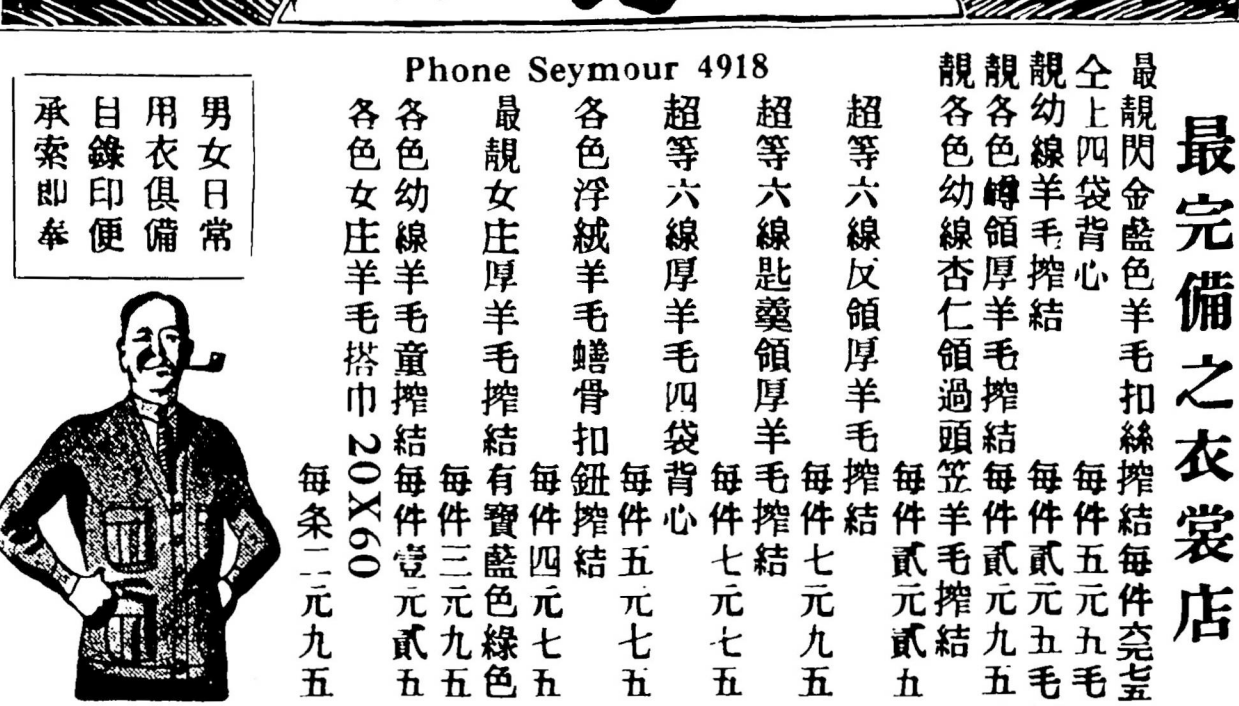 最完備之衣裳店
最靚閃金藍色羊毛扣絲搾結每件六元七五
仝上四袋背心
每件五元九毛
靚幼線羊毛搾結
每件貳元五毛
靚各色樽領厚羊毛搾結每件貳元九五
靚各色幼線杏仁領過頭笠羊毛搾結
每件貳元貳九
超等六線反領厚羊毛搾結
每件七元九五
超等六線匙羹領厚羊毛搾結
每件七元七五
超等六線厚羊毛四袋背心
每件五元七五
各色浮絨羊毛蟮骨扣鈕搾結
每件四元七五
最靚女庄厚羊毛搾結有寶藍色綠色
每件三元九五
各色幼線羊毛童搾結每件壹元貳五
各色女庄羊毛搭巾 20X60
每条二元九五
Phone Seymour 4918
男女日常
用衣俱備
目錄印便
承索即奉